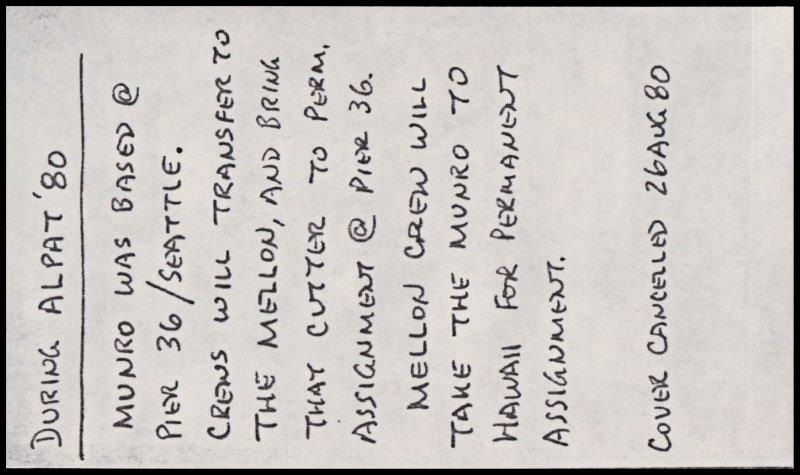 DURING ALPAT '80
MUNRO WAS BASED @
PIER 36/SEATTLE.
CREWS WILL TRANSFER TO
THE MELLON, AND BRING
THAT CUTTER TO PERM.
ASSIGNMENT @ PIER 36.
MELLON CREW WILL
TAKE THE MUNRO TO
HAWAII FOR PERMANENT
ASSIGNMENT.
COVER CANCELLED 26AUG80